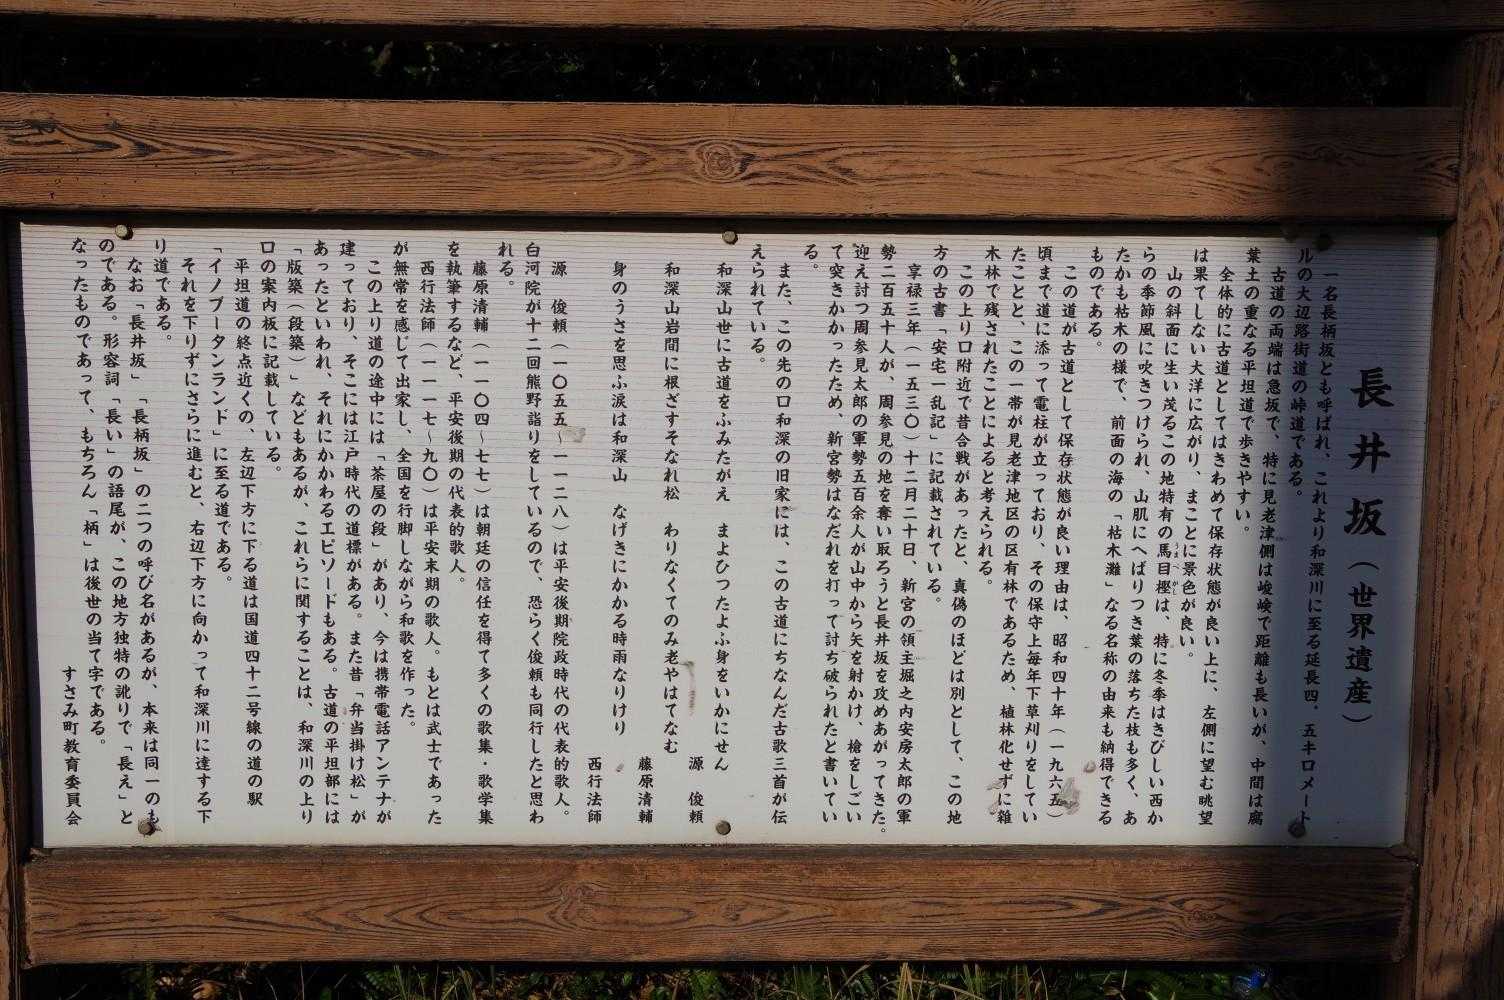 長井坂（世界遺産）
一名長柄坂とも呼ばれ、これより和深川に至る延長四．五キロメート
ルの大辺路街道の峠道である。
古道の両端は急坂で、特に見老津側は峻嶮で距離も長いが、中間は腐
葉土の重なる平坦道で歩きやすい。
全体的に古道としてはきわめて保存状態が良い上に、左側に望む眺望
は果てしない大洋に広がり、まことに景色が良い。
山の斜面に生い茂るこの地特有の馬目樫は、特に冬季はきびしい西か
らの季節風に吹きつけられ、山肌にへばりつき葉の落ちた枝も多く、あ
たかも枯木の様で、前面の海の「枯木灘」なる名称の由来も納得できる
ものである。
この道が古道として保存状態が良い理由は、昭和四十年（一九六五）
頃まで道に添って電柱が立っており、その保守上毎年下草刈りをしてい
たことと、この一帯が見老津地区の区有林であるため、植林化せずに雑
木林で残されたことによると考えられる。
この上り口附近で昔合戦があったと、真偽のほどは別として、この地
方の古書「安宅一乱記」に記載されている。
享禄三年（一五三〇）十二月二十日、新宮の領主堀之内安房太郎の軍
勢二百五十人が、周参見の地を奪い取ろうと長井坂を攻めあがってきた。
迎え討つ周参見太郎の軍勢五百余人が山中から矢を射かけ、槍をしごい
て突きかかったため、新宮勢はなだれを打って討ち破られたと書いてい
る。
また、この先の口和深の旧家には、この古道にちなんだ古歌三首が伝
えられている。
和深山世に古道をふみたがえ　まよひつたよふ身をいかにせん
源　俊頼
和深山岩間に根ざすそなれ松　わりなくてのみ老やはてなむ
藤原清輔
身のうさを思ふ涙は和深山　なげきにかかる時雨なりけり
西行法師
源　俊頼（一〇五五～一一二八）は平安後期院政時代の代表的歌人。
白河院が十二回熊野詣りをしているので、恐らく俊頼も同行したと思わ
れる。
藤原清輔（一一〇四～七七）は朝廷の信任を得て多くの歌集・歌学集
を執筆するなど、平安後期の代表的歌人。
西行法師（一一一七～九〇）は平安末期の歌人。もとは武士であった
が無常を感じて出家し、全国を行脚しながら和歌を作った。
この上り道の途中には「茶屋の段」があり、今は携帯電話アンテナが
建っており、そこには江戸時代の道標がある。また昔「弁当掛け松」が
あったといわれ、それにかかわるエピソードもある。古道の平坦部には
「版築（段築）」などもあるが、これらに関することは、和深川の上り
口の案内板に記載している。
平坦道の終点近くの、左辺下方に下る道は国道四十二号線の道の駅
「イノブータンランド」に至る道である。
それを下りずにさらに進むと、右辺下方に向かって和深川に達する下
り道である。
なお「長井坂」「長柄坂」の二つの呼び名があるが、本来は同一のも
のである。形容詞「長い」の語尾が、この地方独特の訛りで「長え」と
なったものであって、もちろん「柄」は後世の当て字である。
すさみ町教育委員会